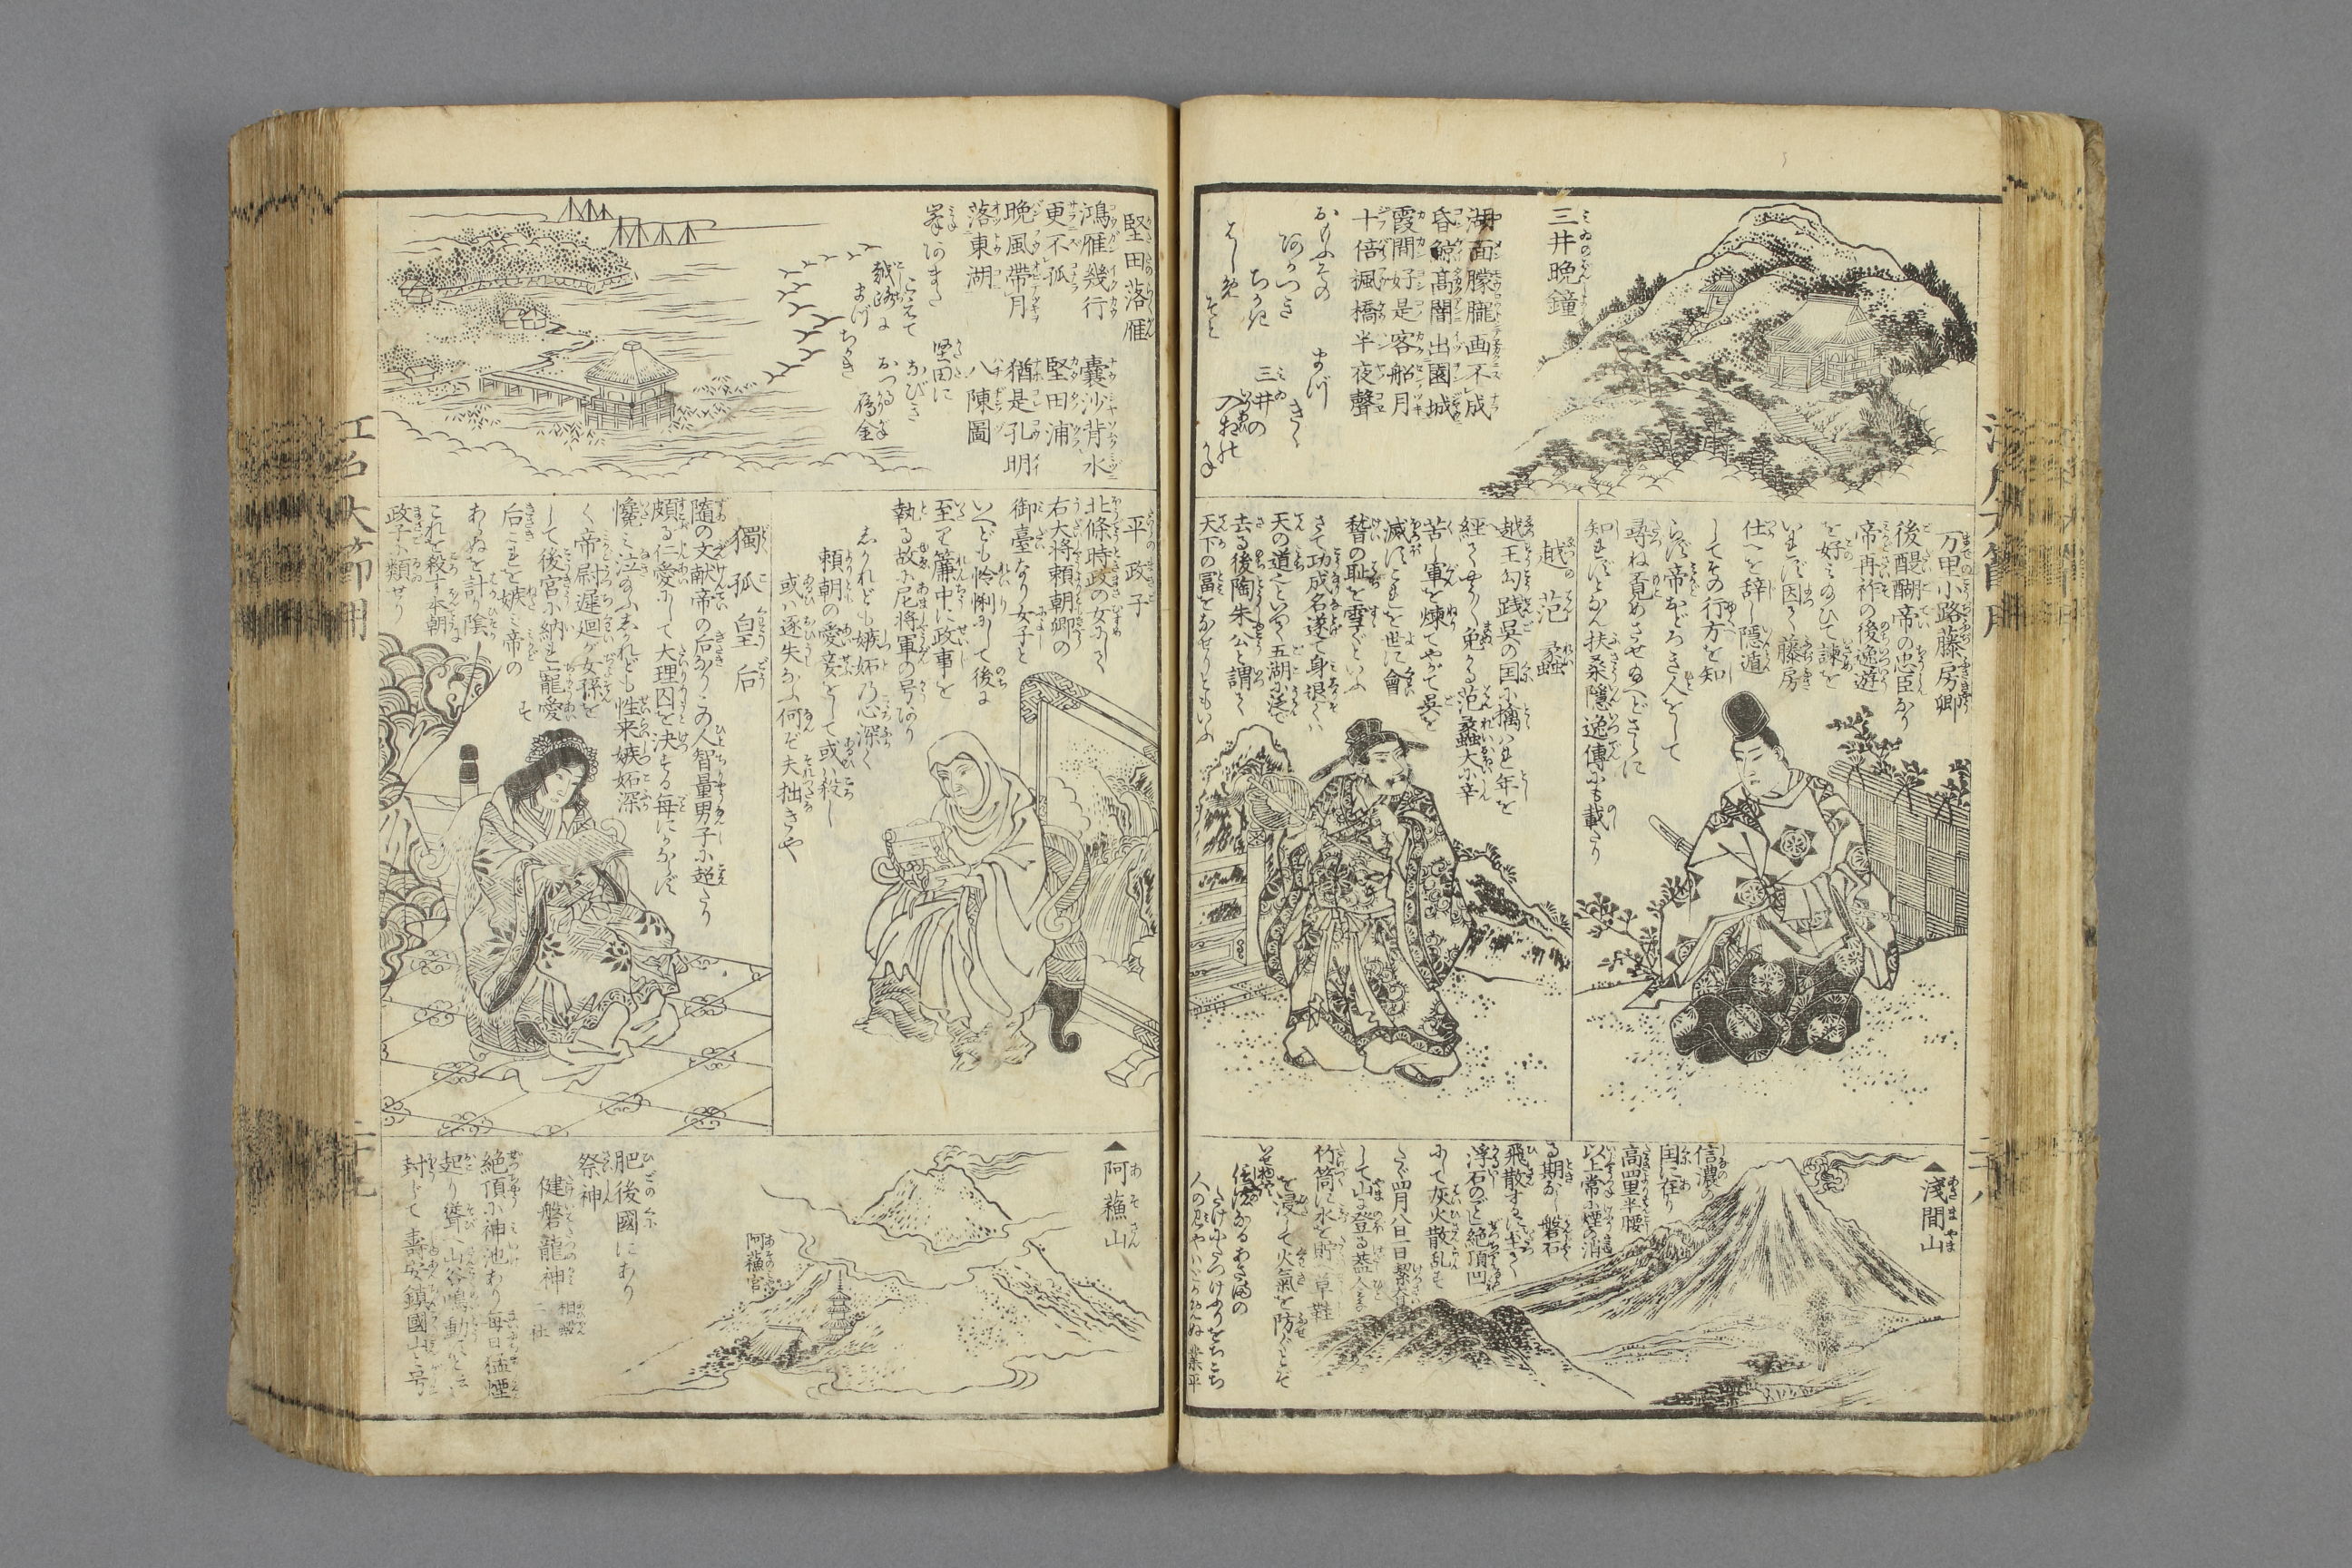 三井晩鐘
湖面朦朧画不成
昏鯨高閣出園城
霞間好是客船月
十倍楓橋半夜聲
おもふその
あかつき
ちかき
はしめ
そと
まづ
きく
三井の
入あひ
かね
万里小路藤房卿
後醍醐帝の忠臣なり
帝再祚の後逸遊
を好みのひて諫を
いれず因て藤房
仕へを辞し隠遁
してその行方を知
らず帝おどろき人をして
尋ね覓めさせぬへどさらに
知れずとなん扶桑隠逸傳にも載たり
越 范蠡
越王勾践呉の国に擒はれ年を
経てやうやく免かる范蠡大に辛
苦し軍を煉てやがて呉を
滅ぼすこれを世に會
稽の恥を雪ぐといふ
さて功成名遂て身退くハ
天の道也といひて五湖に泛で
去る後陶朱公と謂て
天下の冨をなせりともいふ
▲淺間山
信濃の
国に在り
高四里半腰
以上常に煙の消
る期なし磐石
飛散する事
浮石のごと絶頂凹
にて灰火散乱す
たゞ四月八日一日潔斎
して山に登る益人
竹筒に水を貯草鞋
を浸して火氣を防ぐとぞ
いせ物語
信濃なるあさまの
たけにたつけふりをちこち
人の見やハとがめぬ 業平
堅田落雁
鴻雁幾行 嚢沙背水
更不孤 堅田浦
晩風帶月 猶是孔明
落東湖 八陳圖
峯あまた
こえて
越路に
まづ
ちかき
堅田に
なびき
おつる
雁金
平政子
北條時政の女にして
右大将頼朝卿の
御臺なり女子と
いへども怜悧にして後に
至て簾中に政事を
執る故に尼将軍の号あり
しかれども嫉妬の心深く
頼朝の愛妾をして或ハ殺し
或ハ逐失なふ何ぞ夫拙きや
獨孤皇后
隨の文献帝の后なりこの人智量男子に超たり
頗る仁愛にして大理囚を決する毎にかならず
憐み泣のふしかれども性来嫉妬深
く帝尉遅迴が女孫を
して後宮に納れ寵愛す
后これを嫉ミ帝の
あらぬを計り陰に
これを殺す本朝
政子に類せり
▲阿蘓山
阿蘓宮
肥後國にあり
祭神
健磐龍神
相殿
二社
絶頂に神池あり毎日猛煙
起り聳へ山谷鳴動
封じて壽安鎮國山と号
二十八
二十九